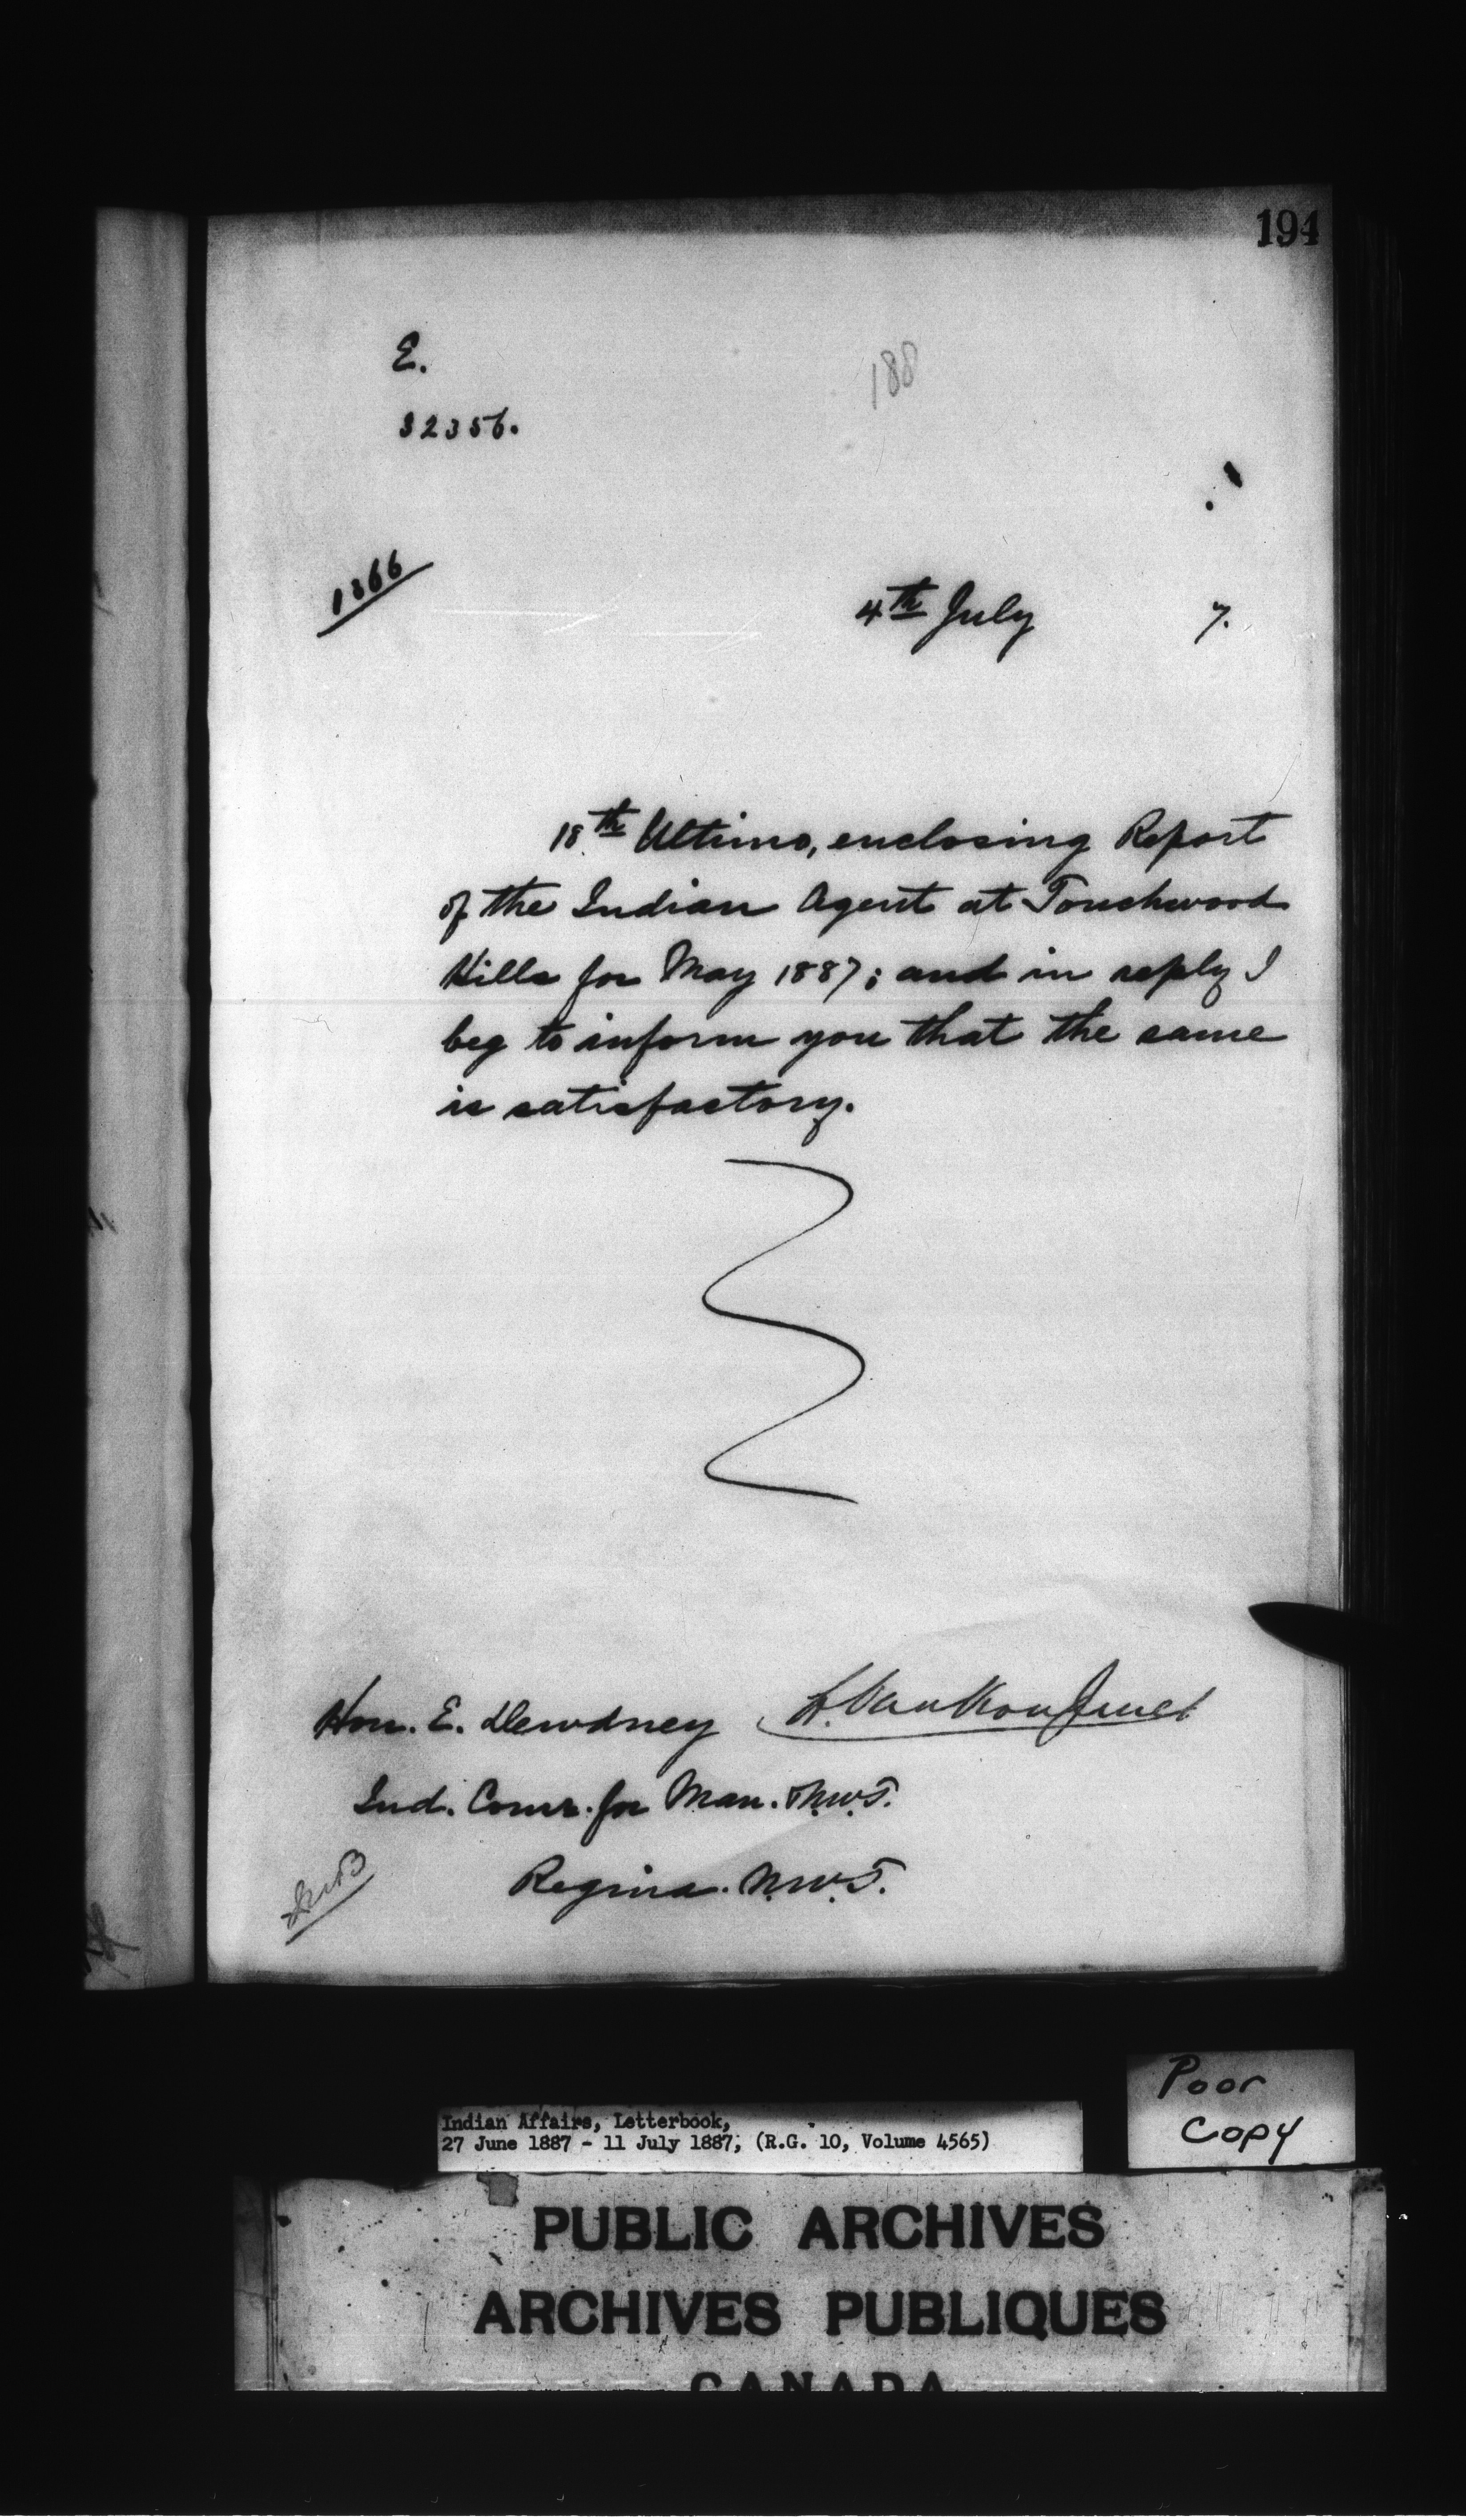 194
E.
188
32356.
1366
4th July 7.
18th Ultimo, enclosing Report
of the Indian Agent at Touchwood
Hills for May 1887; and in reply I
beg to inform you that the same
is satisfactory.
Hon. E. Dewdney L. VanKoughnet
Ind. Comr. for Man. & N.W.T.
Regina. N.W.T.
Poor
Copy
Indian Affairs, Letterbook,
27 June 1887 - 11 July 1887, (R.G. 10, Volume 4565)
PUBLIC ARCHIVES
ARCHIVES PUBLIQUES
CANADA